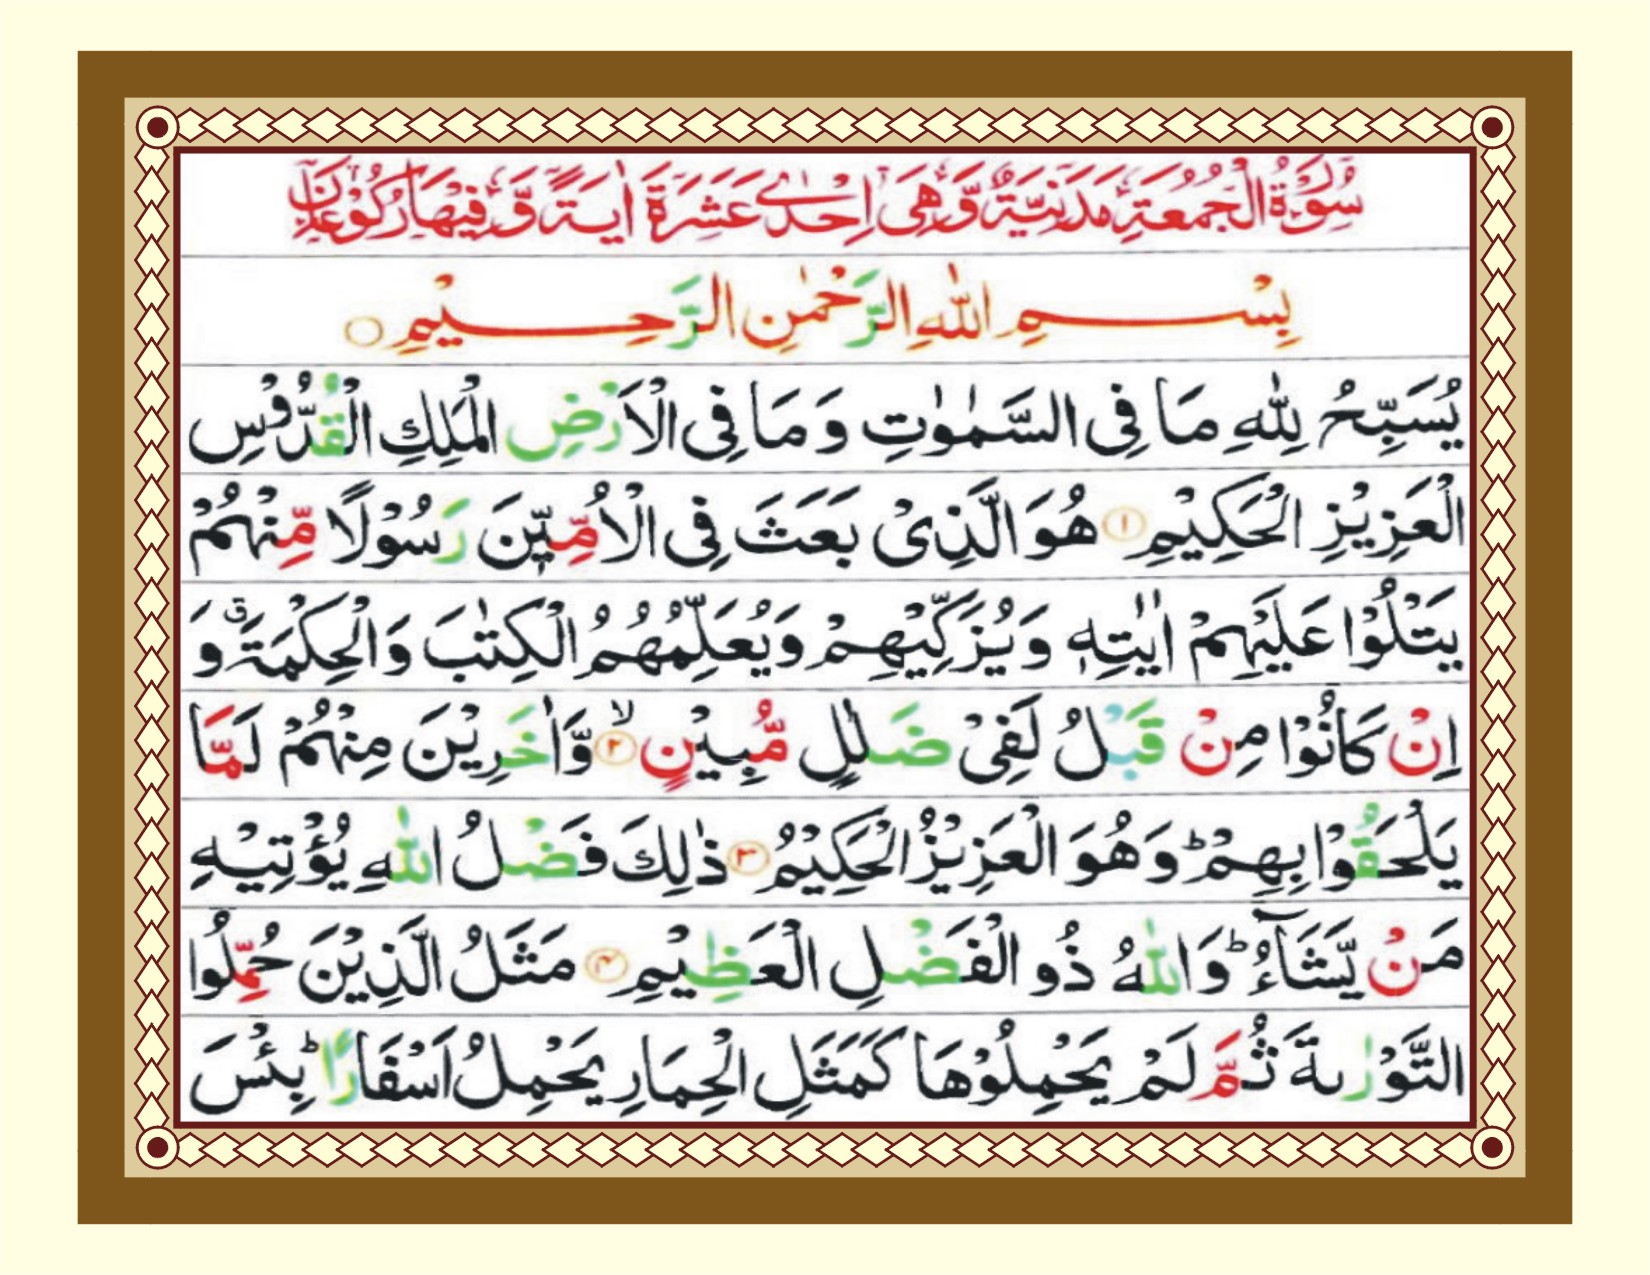 سُوْرَةُ الْجُمُعَةِ مَدَنِيَّةٌ وَّهِىَ اِحْدٰے عَشَرَةَ اٰيَةً وَّفِيْهَا رُكُوْعَانِ
بِسْمِ اللّٰهِ الرَّحْمٰنِ الرَّحِيْمِ ۝
يُسَبِّحُ لِلّٰهِ مَا فِى السَّمٰوٰتِ وَ مَا فِى الْاَرْضِ الْمَلِكِ الْقُدُّوْسِ
الْعَزِيْزِ الْحَكِيْمِ ۝۱ هُوَ الَّذِىْ بَعَثَ فِى الْاُمِّيّٖنَ رَسُوْلًا مِّنْهُمْ
يَتْلُوْا عَلَيْهِمْ اٰيٰتِهٖ وَ يُزَكِّيْهِمْ وَيُعَلِّمُهُمُ الْكِتٰبَ وَالْحِكْمَةَ ۗ وَ
اِنْ كَانُوْا مِنْ قَبْلُ لَفِىْ ضَلٰلٍ مُّبِيْنٍ ۙ۝۲ وَّاٰخَرِيْنَ مِنْهُمْ لَمَّا
يَلْحَقُوْا بِهِمْ ؕ وَهُوَ الْعَزِيْزُ الْحَكِيْمُ ۝۳ ذٰلِكَ فَضْلُ اللّٰهِ يُؤْتِيْهِ
مَنْ يَّشَآءُ ؕ وَاللّٰهُ ذُو الْفَضْلِ الْعَظِيْمِ ۝۴ مَثَلُ الَّذِيْنَ حُمِّلُوا
التَّوْرٰىةَ ثُمَّ لَمْ يَحْمِلُوْهَا كَمَثَلِ الْحِمَارِ يَحْمِلُ اَسْفَارًا ؕ بِئْسَ